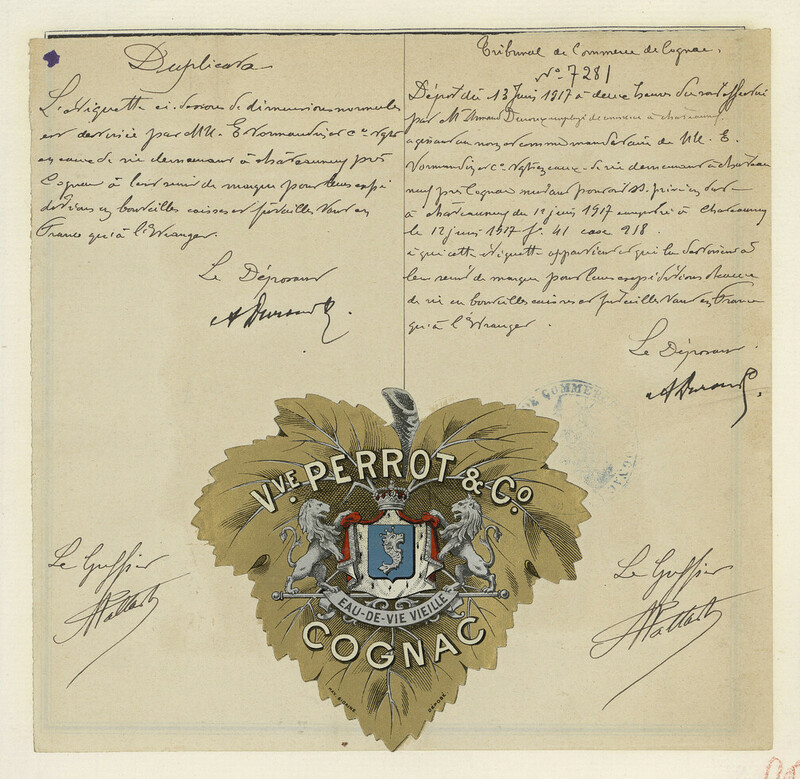 Duplicata
L'étiquette ci-dessus de dimensions normales
est destinée par MM. E. Normandin et Cie Négts
en eaux de vie demeurant à Châteauneuf près
Cognac à leur servir de marque pour leurs expé
ditions en bouteilles caisses et futailles tant en
France qu'à l'étranger.
Le Déposant
A Durand
Le Greffier
Tribunal de Commerce de Cognac.
No 7281
Dépôt du 13 Juin 1917 à deux heures du soir effectué
par M. Armand Durand employé de commerce à Châteauneuf
agissant au nom et comme mandataire de MM. E.
Normandin et Cie Négts en eaux-de-vie demeurant à Château
neuf près Cognac suivant pouvoir ss. privé en date
à Châteauneuf du 12 juin 1917 enregistré à Châteauneuf
le 12 juin 1917 fo 41 case 218.
à qui cette étiquette appartient et qui la destinent à
leur servir de marque pour leurs expéditions d'eaux
de vie en bouteilles caisses et futailles tant en France
qu'à l'étranger.
Le Déposant
A Durand
DE COMMERCE
Le Greffier
VVE. PERROT & Co
EAU-DE-VIE VIEILLE
COGNAC
DÉPOSÉ